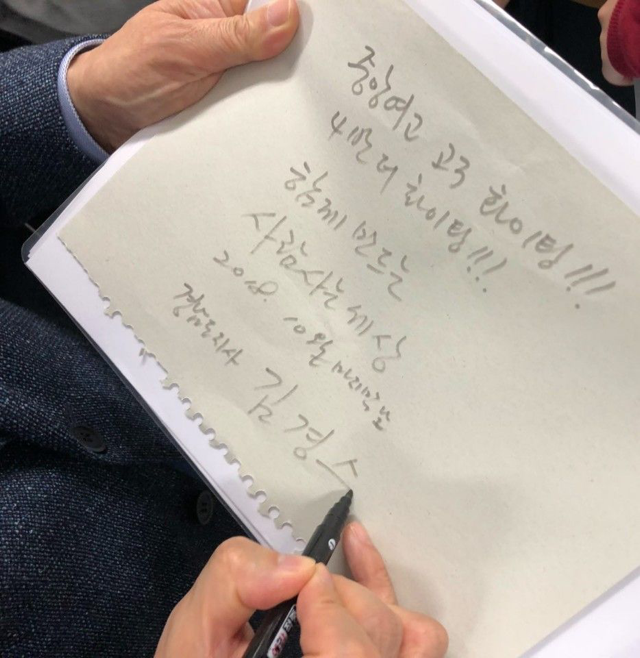 중앙여고 공주 화이팅!!!
4반 화이팅!!!
함께 만드는
사람사는 세상
2018. 10월 마지막날
경남도지사 김경수